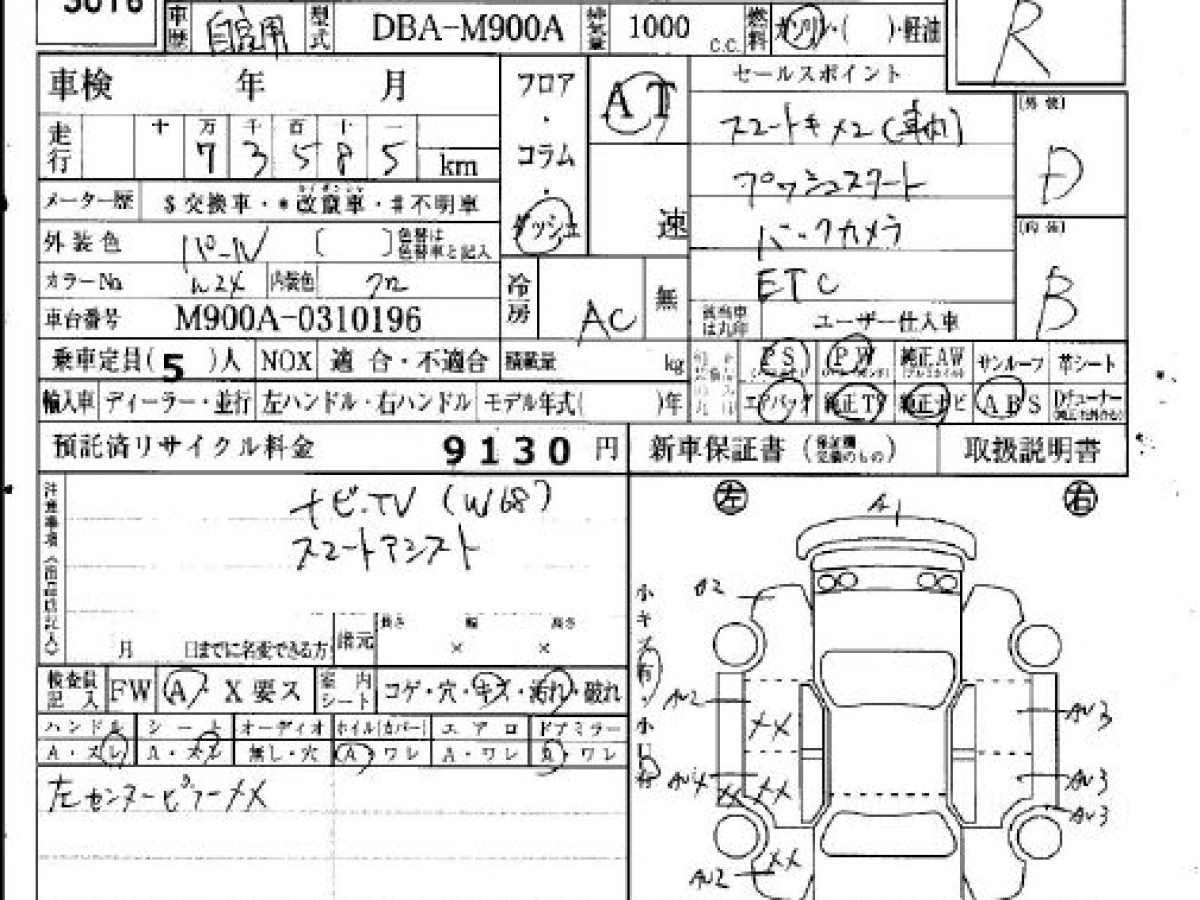 車歴 自家用 型式 DBA-M900A 排気量 1000 c.c. 燃料 ガソリン・( )・軽油 R
車検 年 月 フロア・コラム・ダッシュ AT 速 セールスポイント
スマートキー×2(車内)
プッシュスタート
バックカメラ
ETC
[外装] D
[内装] B
走行 十 万 千 百 十 一
7 3 5 8 5 km
メーター歴 $交換車・*改竄車・#不明車
外装色 パール 〔 〕色替は色替車と記入
カラーNo. W24 内装色 クロ
車台番号 M900A-0310196
冷房 AC 無
該当車は丸印 ユーザー仕入車
乗車定員(5)人 NOX 適合・不適合 積載量 kg
PS PW 純正AW サンルーフ 革シート
輸入車 ディーラー・並行 左ハンドル・右ハンドル モデル年式( )年
エアバッグ 純正TV 純正ナビ ABS Dチューナー
預託済リサイクル料金 9130 円 新車保証書 取扱説明書
注意事項(出品店記入)
ナビ・TV (W68)
スマートアシスト
月 日までに名変できる方
諸元 長さ × 幅 × 高さ
検査員記入 FW A・X要ス 室内シート コゲ・穴・キズ・汚れ・破れ
ハンドル シート オーディオ ホイル(カバー) エアロ ドアミラー
A・スレ A・スレ 無し・穴 A・ワレ A・ワレ A・ワレ
左センターピラーXX
左 右
A1
小キズ有・小凹有
AU2
XX
AU3
AU4
XX
XX
AU3
AU3
AU2
XX